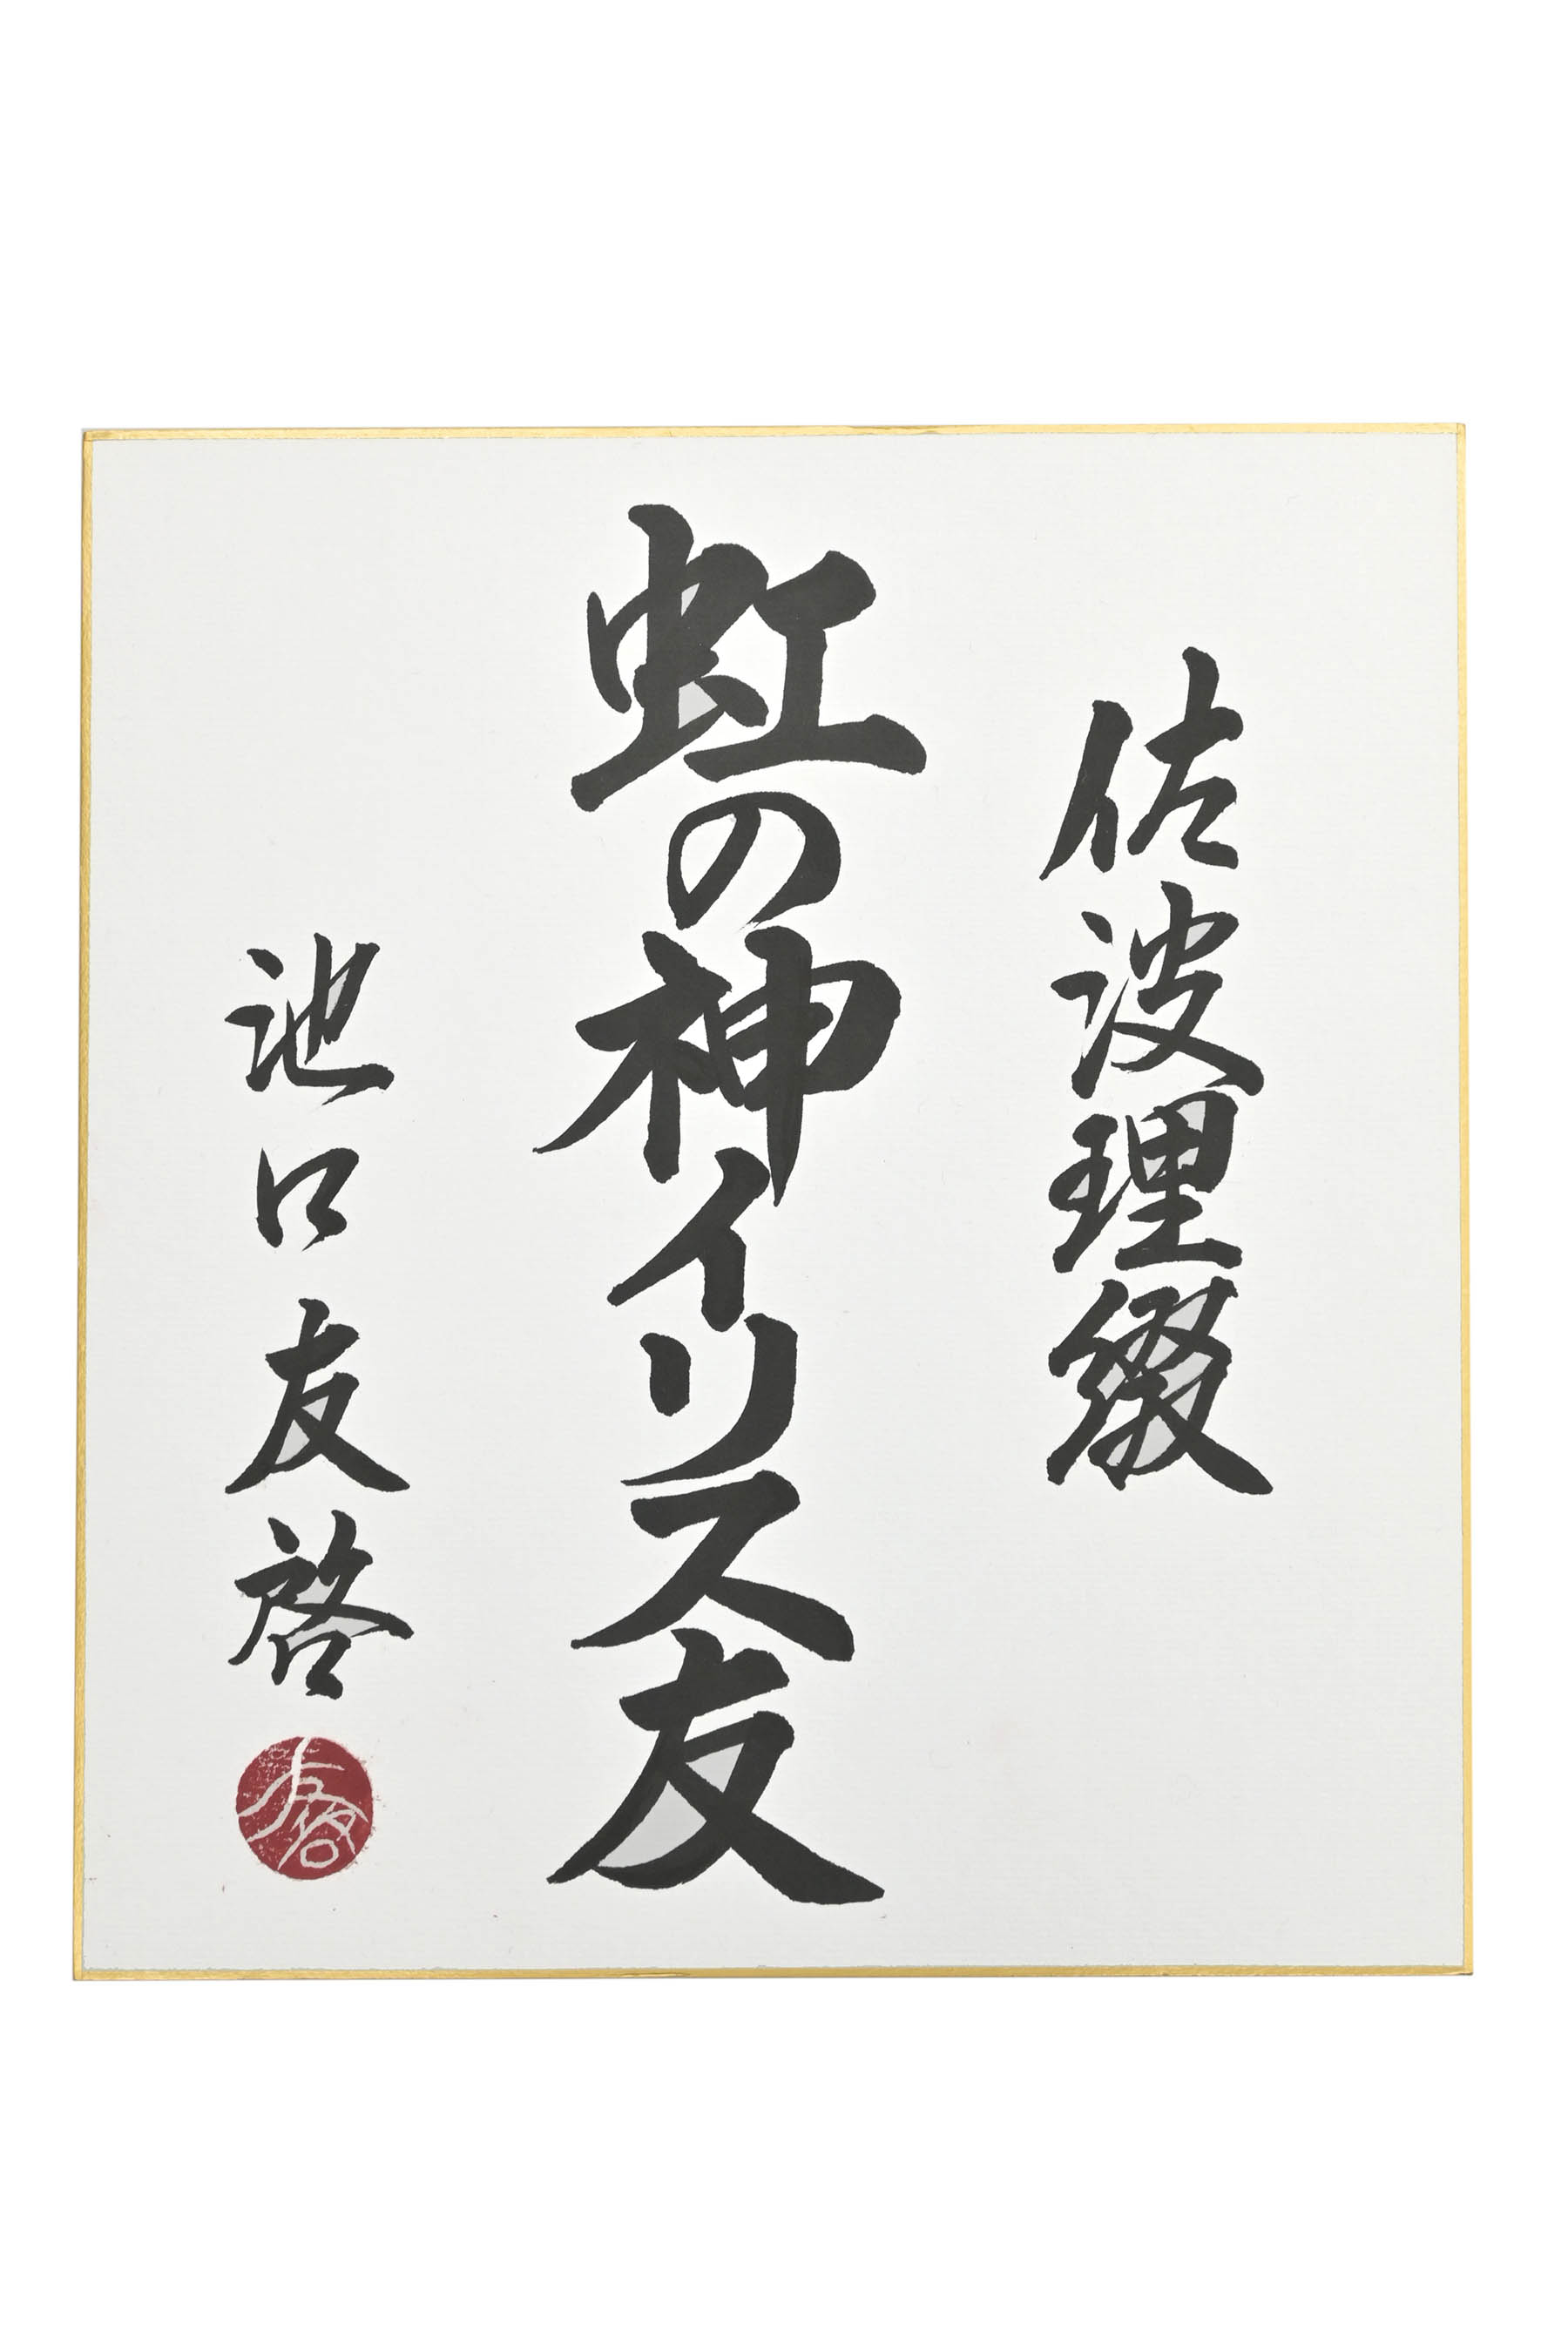 佐波理綴
虹の神イリス友
池口友啓
友啓